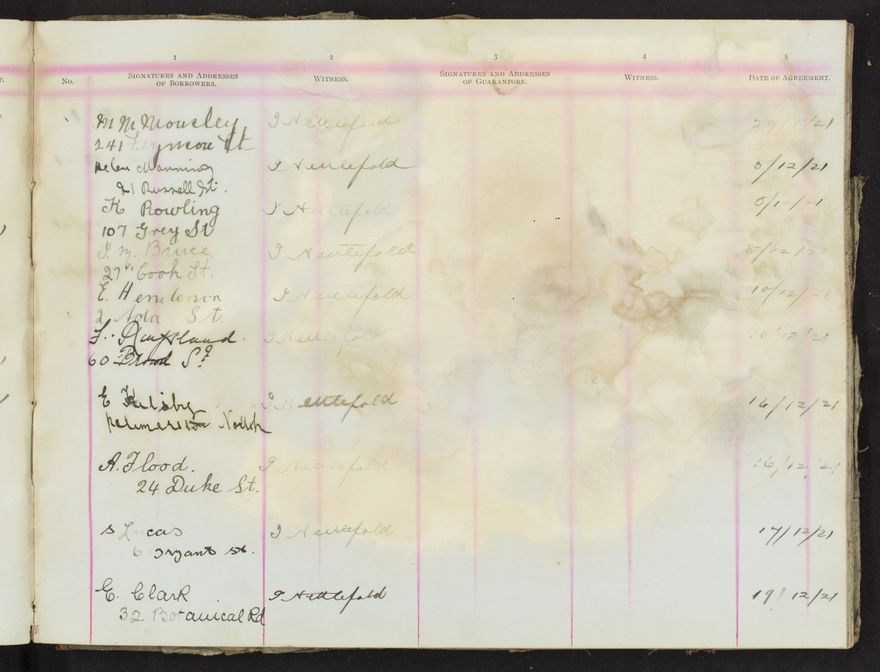 1 2 3 4 5
No. SIGNATURES AND ADDRESSES OF BORROWERS. WITNESS. SIGNATURES AND ADDRESSES OF GUARANTORS. WITNESS. DATE OF AGREEMENT.
M M Mousley I Nettlefold 29/11/21
241 St
Helen Manning I Nettlefold 5/12/21
21 Russell St.
H Rowling I Nettlefold
107 Grey St
J. M. Bruce I Nettlefold 8/12/21
27 Cook St.
E. Henderson I Nettlefold 10/12/21
2 St.
F. I Nettlefold 10/12/21
60 Broad St
E I Nettlefold 16/12/21
North
A. Flood. I Nettlefold 16/12/21
24 Duke St.
S Lucas I Nettlefold 17/12/21
6 Bryants st.
E. Clark I Nettlefold 19/12/21
32 Botanical Rd